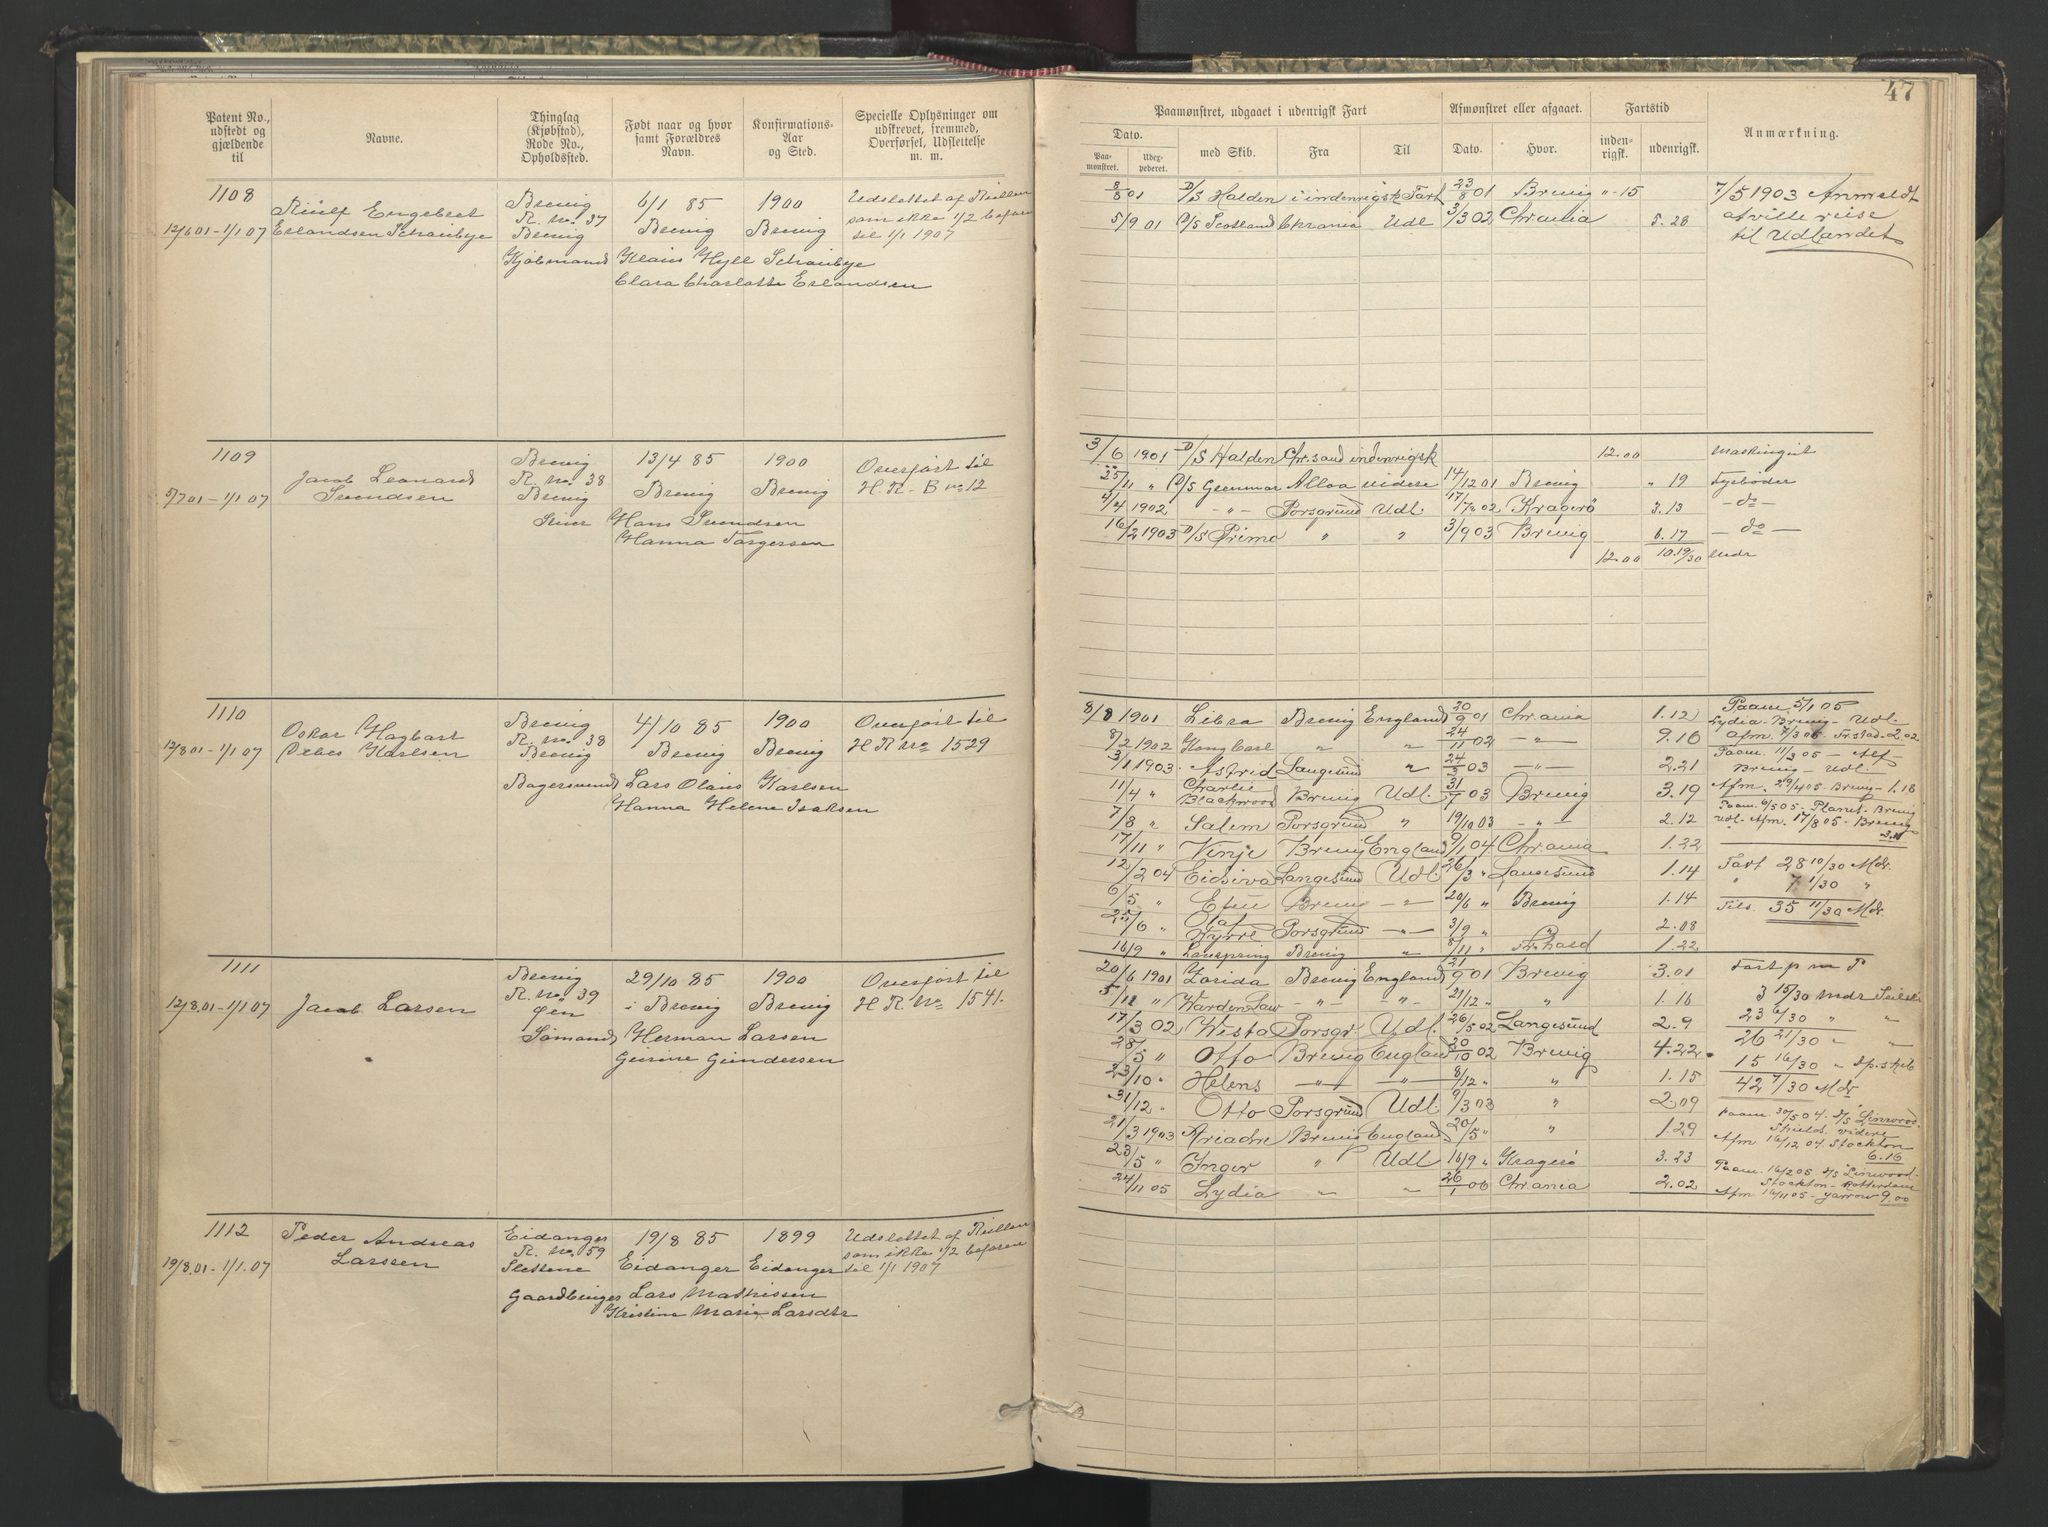 47
Patent No., udstedt og gjældende til
Navne.
Thinglag (Kjøbstad), Rode No., Opholdssted.
Født naar og hvor samt Forældres Navn.
Konfirmations-Aar og Sted.
Specielle Oplysninger om udskrevet, fremmed, Overførsel, Udslettelse m. m.
1108 Brevig 6/1 85 1900 Udslettet af Rullen
Engebret R. No. 37 som ikke 1/2 befaren
12/6 01 - 1/1 07 Erlandsen Schanbye Brevig Brevig Brevig til 1/1 1907
Kjøbmand Klaus Hyll Schanbye
Clara Charlotte Erlandsen
1109 Brevig 13/4 85 1900 Overført til
Jacob Leonard R. No. 38 H. R. B No 12
5/7 01 - 1/1 07 Svendsen Brevig Brevig Brevig
Hans Svendsen
Hanna Torgersen
1110 Brevig 4/10 85 1900 Overført til
Oskar Hagbart R. No. 38
12/8 01 - 1/1 07 Karlsen Brevig Brevig Brevig H R No 1529
Bagersvend Lars Olaus Karlsen
Hanna Helene Isaksen
1111 Brevig 29/10 85 1900 Overført til
R. No. 39
12/8.01 - 1/1 07 Jacob Larsen Øen i Brevig Brevig H R. No 1541.
Sømand Herman Larsen
Gurine Gundersen
1112 Peder Andreas Eidanger 19/8 85 1899 Udslettet af Rullen
Larssen R. No. 59 som ikke 1/2 befaren
19/8.01 - 1/1.07 Slettene Eidanger Eidanger til 1/1 1907
Gaardbruger Lars Mathissen
Kristine Marie Larsdtr
Paamønstret, udgaaet i udenrigsk Fart
Afmønstret eller afgaaet.
Fartstid
Anmærkning.
Dato.
Paa-mønstret.
Udex-pederet.
med Skib.
Fra
Til
Dato.
Hvor.
inden-rigsk.
udenrigsk.
8/8 01 D/S Halden i indenrigsk Fart 23/8 01 Brevig " - 15 7/5 1903 Anmeldt
5/9 01 D/S Scotland Chrania Udl 3/3 02 Chrania 5.28 at ville reise
til Udlandet
3/6 1901 D/S Halden Chr.sand indenrigsk 12.00 Maskingut
25/11 " D/S Grenmar Alloa videre 14/12 01 Brevig " 19 Fyrbøder
4/4 1902 -"- Porsgrund Udl 17/7 02 Kragerø 3.13 - do -
16/2 1903 D/S Primo " " 3/9 03 Brevig 6.17 - do -
12.00 10.19/30 Mdr
8/8 1901 Libra Brevig England 20/9 01 Chrania 1.12 Paam 5/1 05
Lydia - Brevig - Udl.
8/2 1902 Kong Carl " " 24/11 02 -"- 9.16
3/1 1903 Astrid Langesund " 24/3 03 -"- 2.21 Paam. 11/3 05 - Alf -
Brevig - Udl.
11/4 " Charlie Blackwood Brevig Udl. 31/7 03 Brevig 3.19 Afm. 29/4 05 - Brevig - 1.18
Paam. 6/5 05 - Planet - Brevig
7/8 " Salem Porsgrund " 19/10 03 -"- 2.12 Udl. Afm. 17/8 05 - Brevig
17/11 " Vinje Brevig England 9/1 04 Chrania 1.22
12/2 04 Eidsiva Langesund Udl. 26/3 " Langesund 1.14 Fart 28 10/30 Mdr.
" 7 1/30 "
6/5 " Brevig -"- 20/6 " Brevig 1.14 Tils. 35 11/30 Mdr.
25/6 " Olaf Kyrre Porsgrund -"- 3/9 " " 2.08
16/9 " Lanspring Brevig " 8/11 " 1.22
20/6 1901 Zarida Brevig England 21/9 01 Brevig 3.01
5/11 " Warden Law -"- -"- 21/12 " " 1.16 3 15/30 Mdr Seilsk
17/3 02 Westa Porsgr. Udl. 26/5 02 Langesund 2.9 23 6/30 " "
28/5 " Otto Brevig England 20/10 02 Brevig 4.22 26 21/30 " "
15 16/30 " Dp.skib
23/10 " Helens -"- -"- 8/12 " " 1.15 42 7/30 Mdr
31/12 " Otto Porsgrund Udl. 9/3 03 " 2.09 Paam. 30/5 04. S/S Linwood.
Shields videre
21/3 1903 Ariadne Brevig England 20/5 " " 1.29 Afm 16/12 04 Stockton
6.16
23/5 " Inger " Udl 16/9 " Kragerø 3.23 Paam. 16/2 05. S/S Linwood
Stockton - Rotterdam
24/11 05 Lydia " " 26/1 06 Chrania 2.02 Afm 16/11 05 - Yarrow 9.00